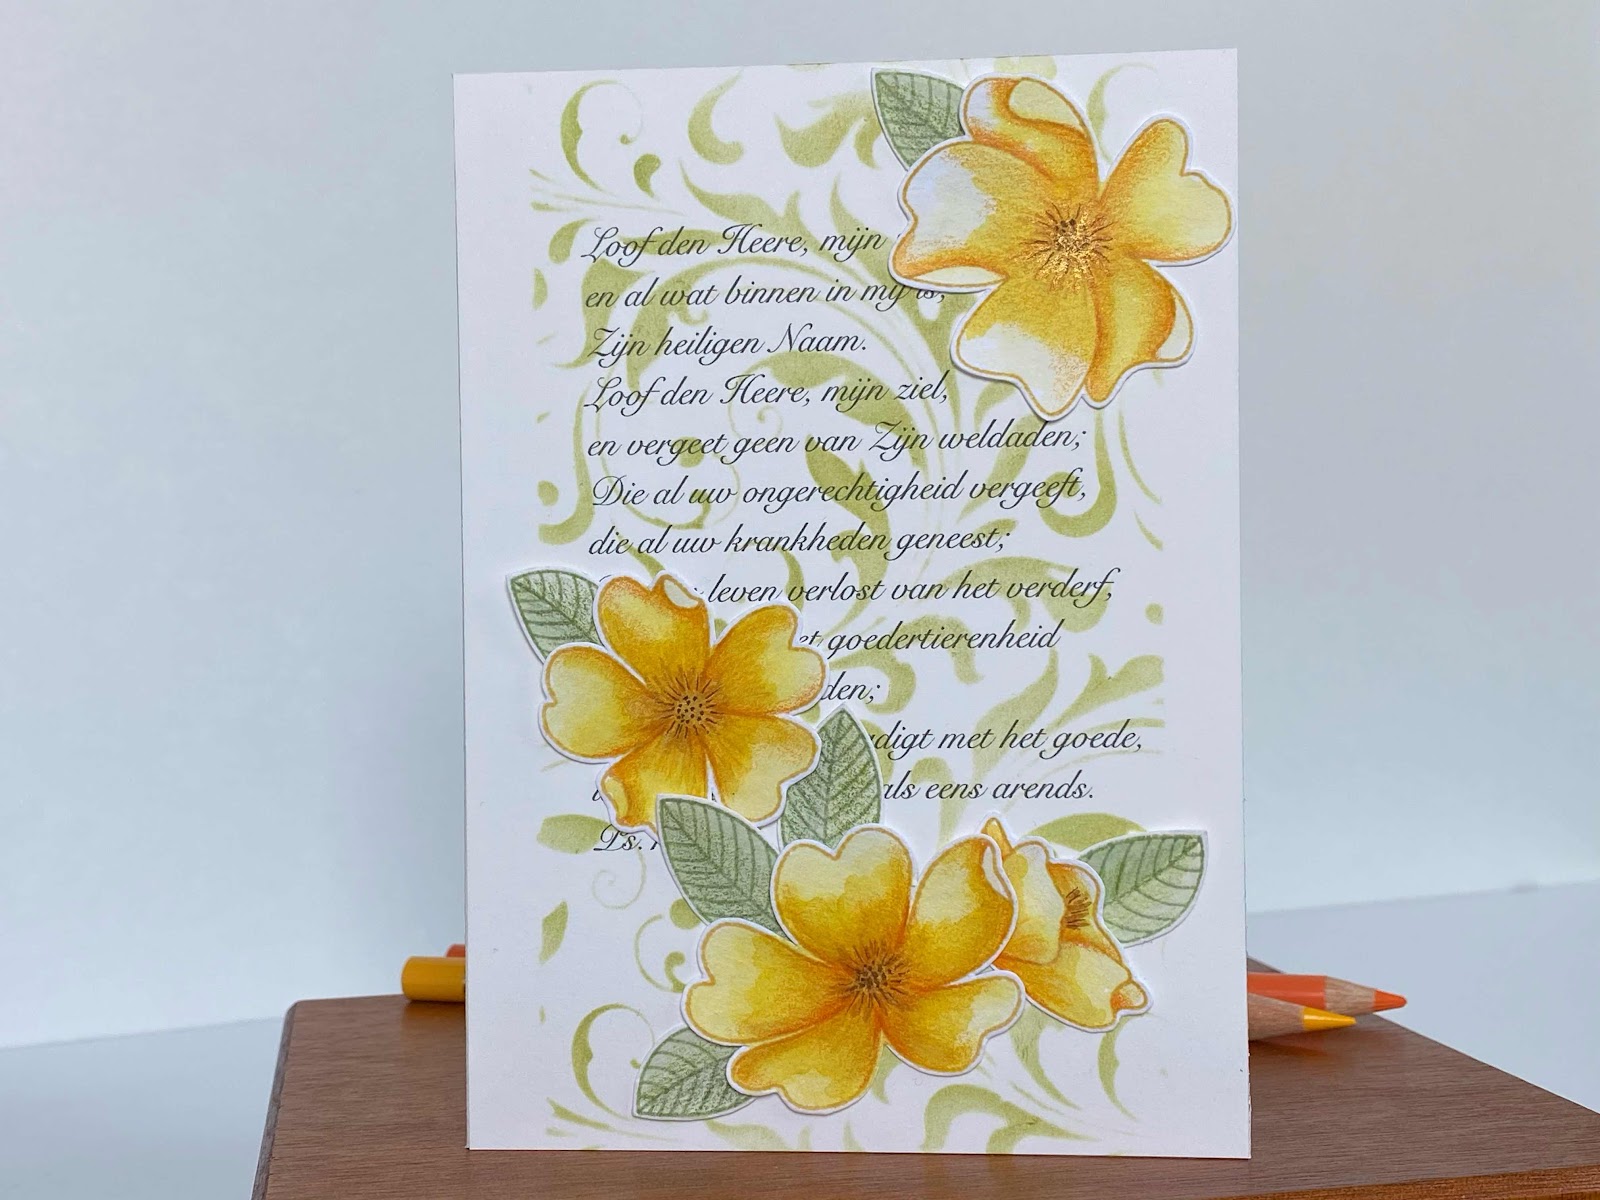 Loof den Heere, mijn
en al wat binnen in mij is,
Zijn heiligen Naam.
Loof den Heere, mijn ziel,
en vergeet geen van Zijn weldaden;
Die al uw ongerechtigheid vergeeft,
die al uw krankheden geneest;
leven verlost van het verderf,
goedertierenheid
met het goede,
als eens arends.
Ps.